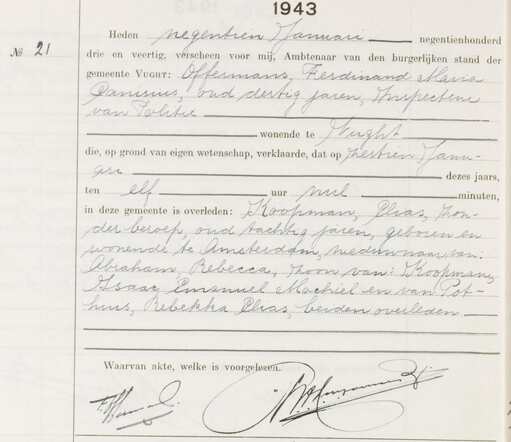 1943
№ 21
Heden negentien Januari negentienhonderd
drie en veertig, verscheen voor mij, Ambtenaar van den burgerlijken stand der
gemeente VUGHT: Offermans, Ferdinand Marie
Canisius, oud dertig jaren, Inspecteur
van Politie
wonende te Vught
die, op grond van eigen wetenschap, verklaarde, dat op zestien Janu-
ari dezes jaars,
ten elf uur nul minuten,
in deze gemeente is overleden: Koopman, Elias, zon-
der beroep, oud tachtig jaren, geboren en
wonende te Amsterdam, weduwnaar van:
Abraham, Rebecca, zoon van: Koopman,
Isaac Emanuel Machiel en van Pot-
huis, Rebekka Elias, beiden overleden
Waarvan akte, welke is voorgelezen.